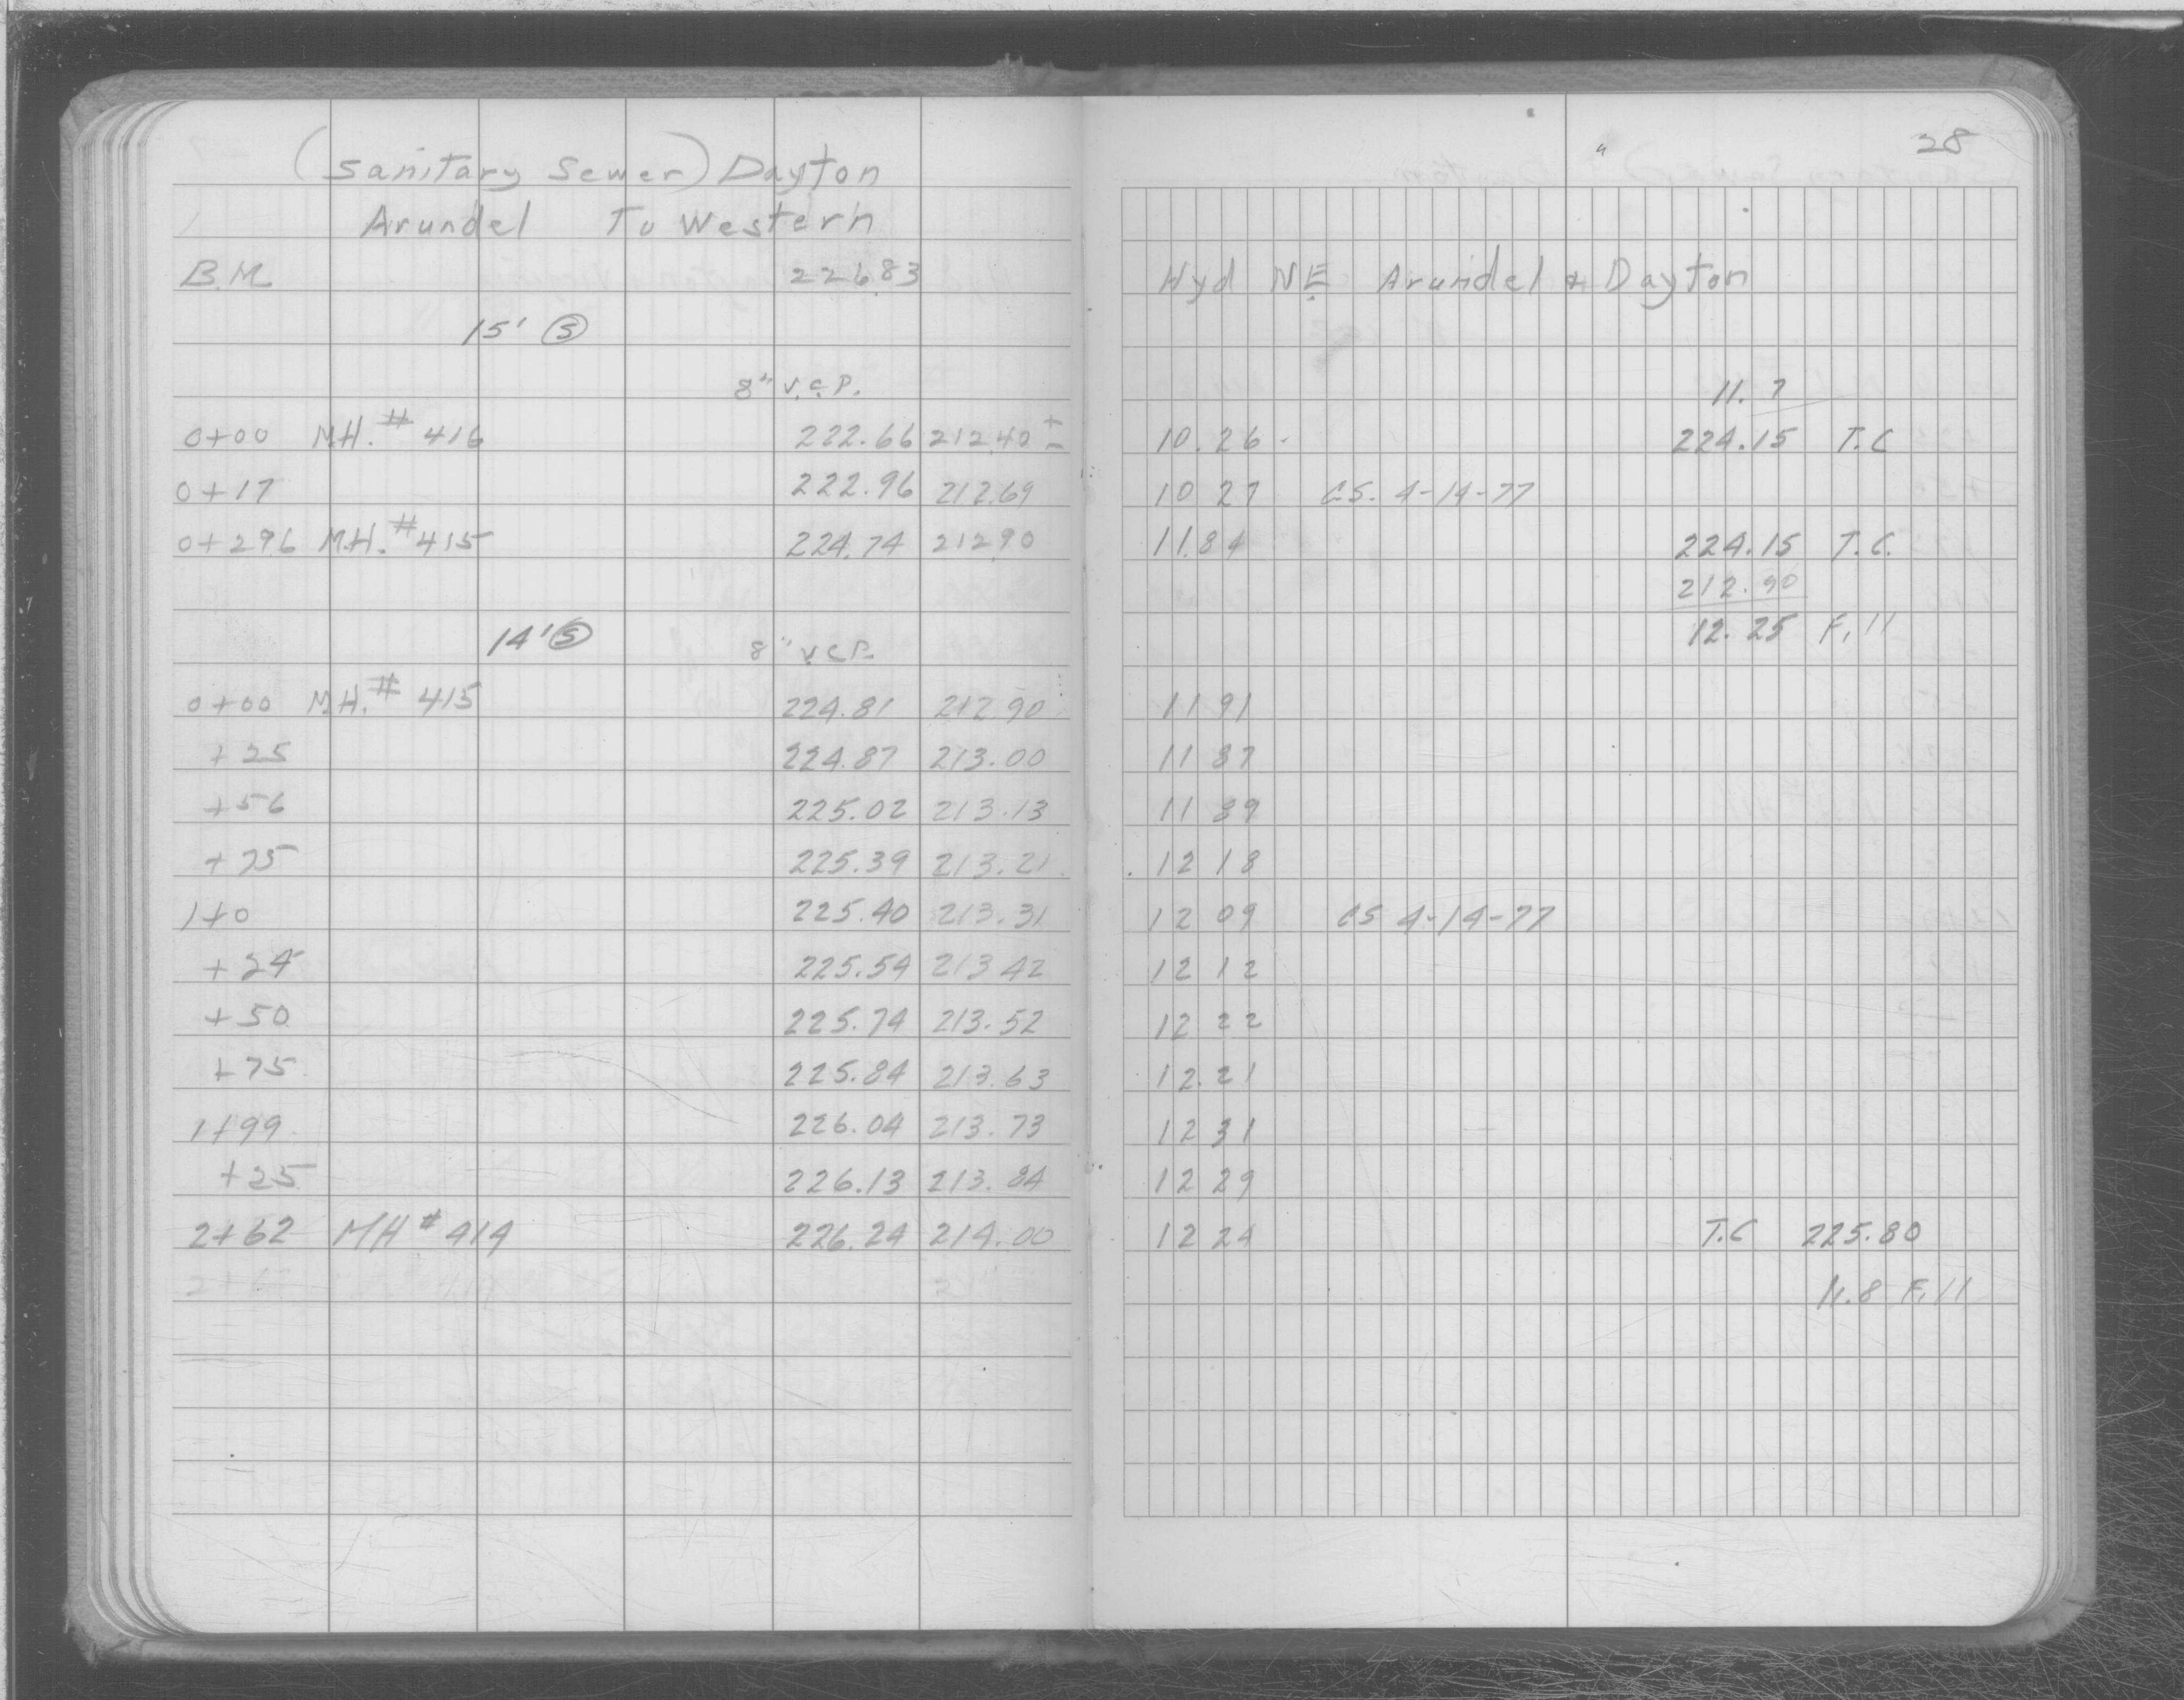 28
(Sanitary Sewer) Dayton
Arundel To Western
B.M. 226.83 Hyd N.E. Arundel & Dayton
15' Ⓢ
8" V.C.P. 11.7
0+00 M.H. # 416 222.66 212.40 ± 10.26 224.15 T.C
0+17 222.96 212.69 10 27 C.S. 4-14-77
0+296 M.H. # 415 224.74 212.90 11.84 224.15 T.C.
212.90
14' Ⓢ 12.25 Fill
8" V.C.P.
0+00 M.H. # 415 224.81 212.90 11 91
+25 224.87 213.00 11 87
+56 225.02 213.13 11 89
+75 225.39 213.21 12 18
1+0 225.40 213.31 12 09 CS 4-14-77
+24 225.54 213.42 12 12
+50 225.74 213.52 12 22
+75 225.84 213.63 12.21
1+99 226.04 213.73 12 31
+25 226.13 213.84 12 29
2+62 MH # 414 226.24 214.00 12 24 T.C 225.80
11.8 Fill